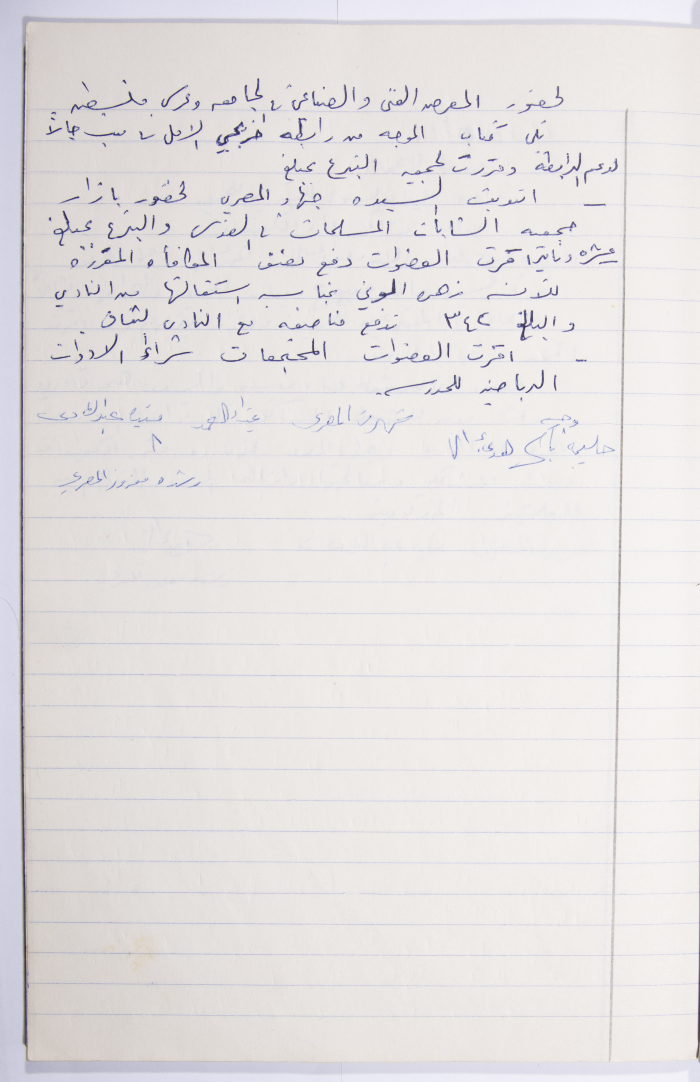 لحضور المعرض الفني والصناعي في الجامعة وعرس فلسطين
تلي كتاب الموجه من رابطة خريجي
لدعم الرابطة وقررت الجمعيه التبرع بمبلغ
– انتدبت السيده جهاد المصري لحضور بازار
جمعيه الشابات المسلمات في القدس والتبرع بمبلغ
عشرة دنانير اقرت العضوات دفع نصف المكافأه المقررة
للآنسه زهره بمناسبه استقالتها من النادي
والبالغ ٣٤٢ تدفع مناصفه مع النادي
– اقرت العضوات المجتمعات شراء الادوات
الرياضيه للمدرسه.
المصري عبد الهادي
حليمه
رشده المصري